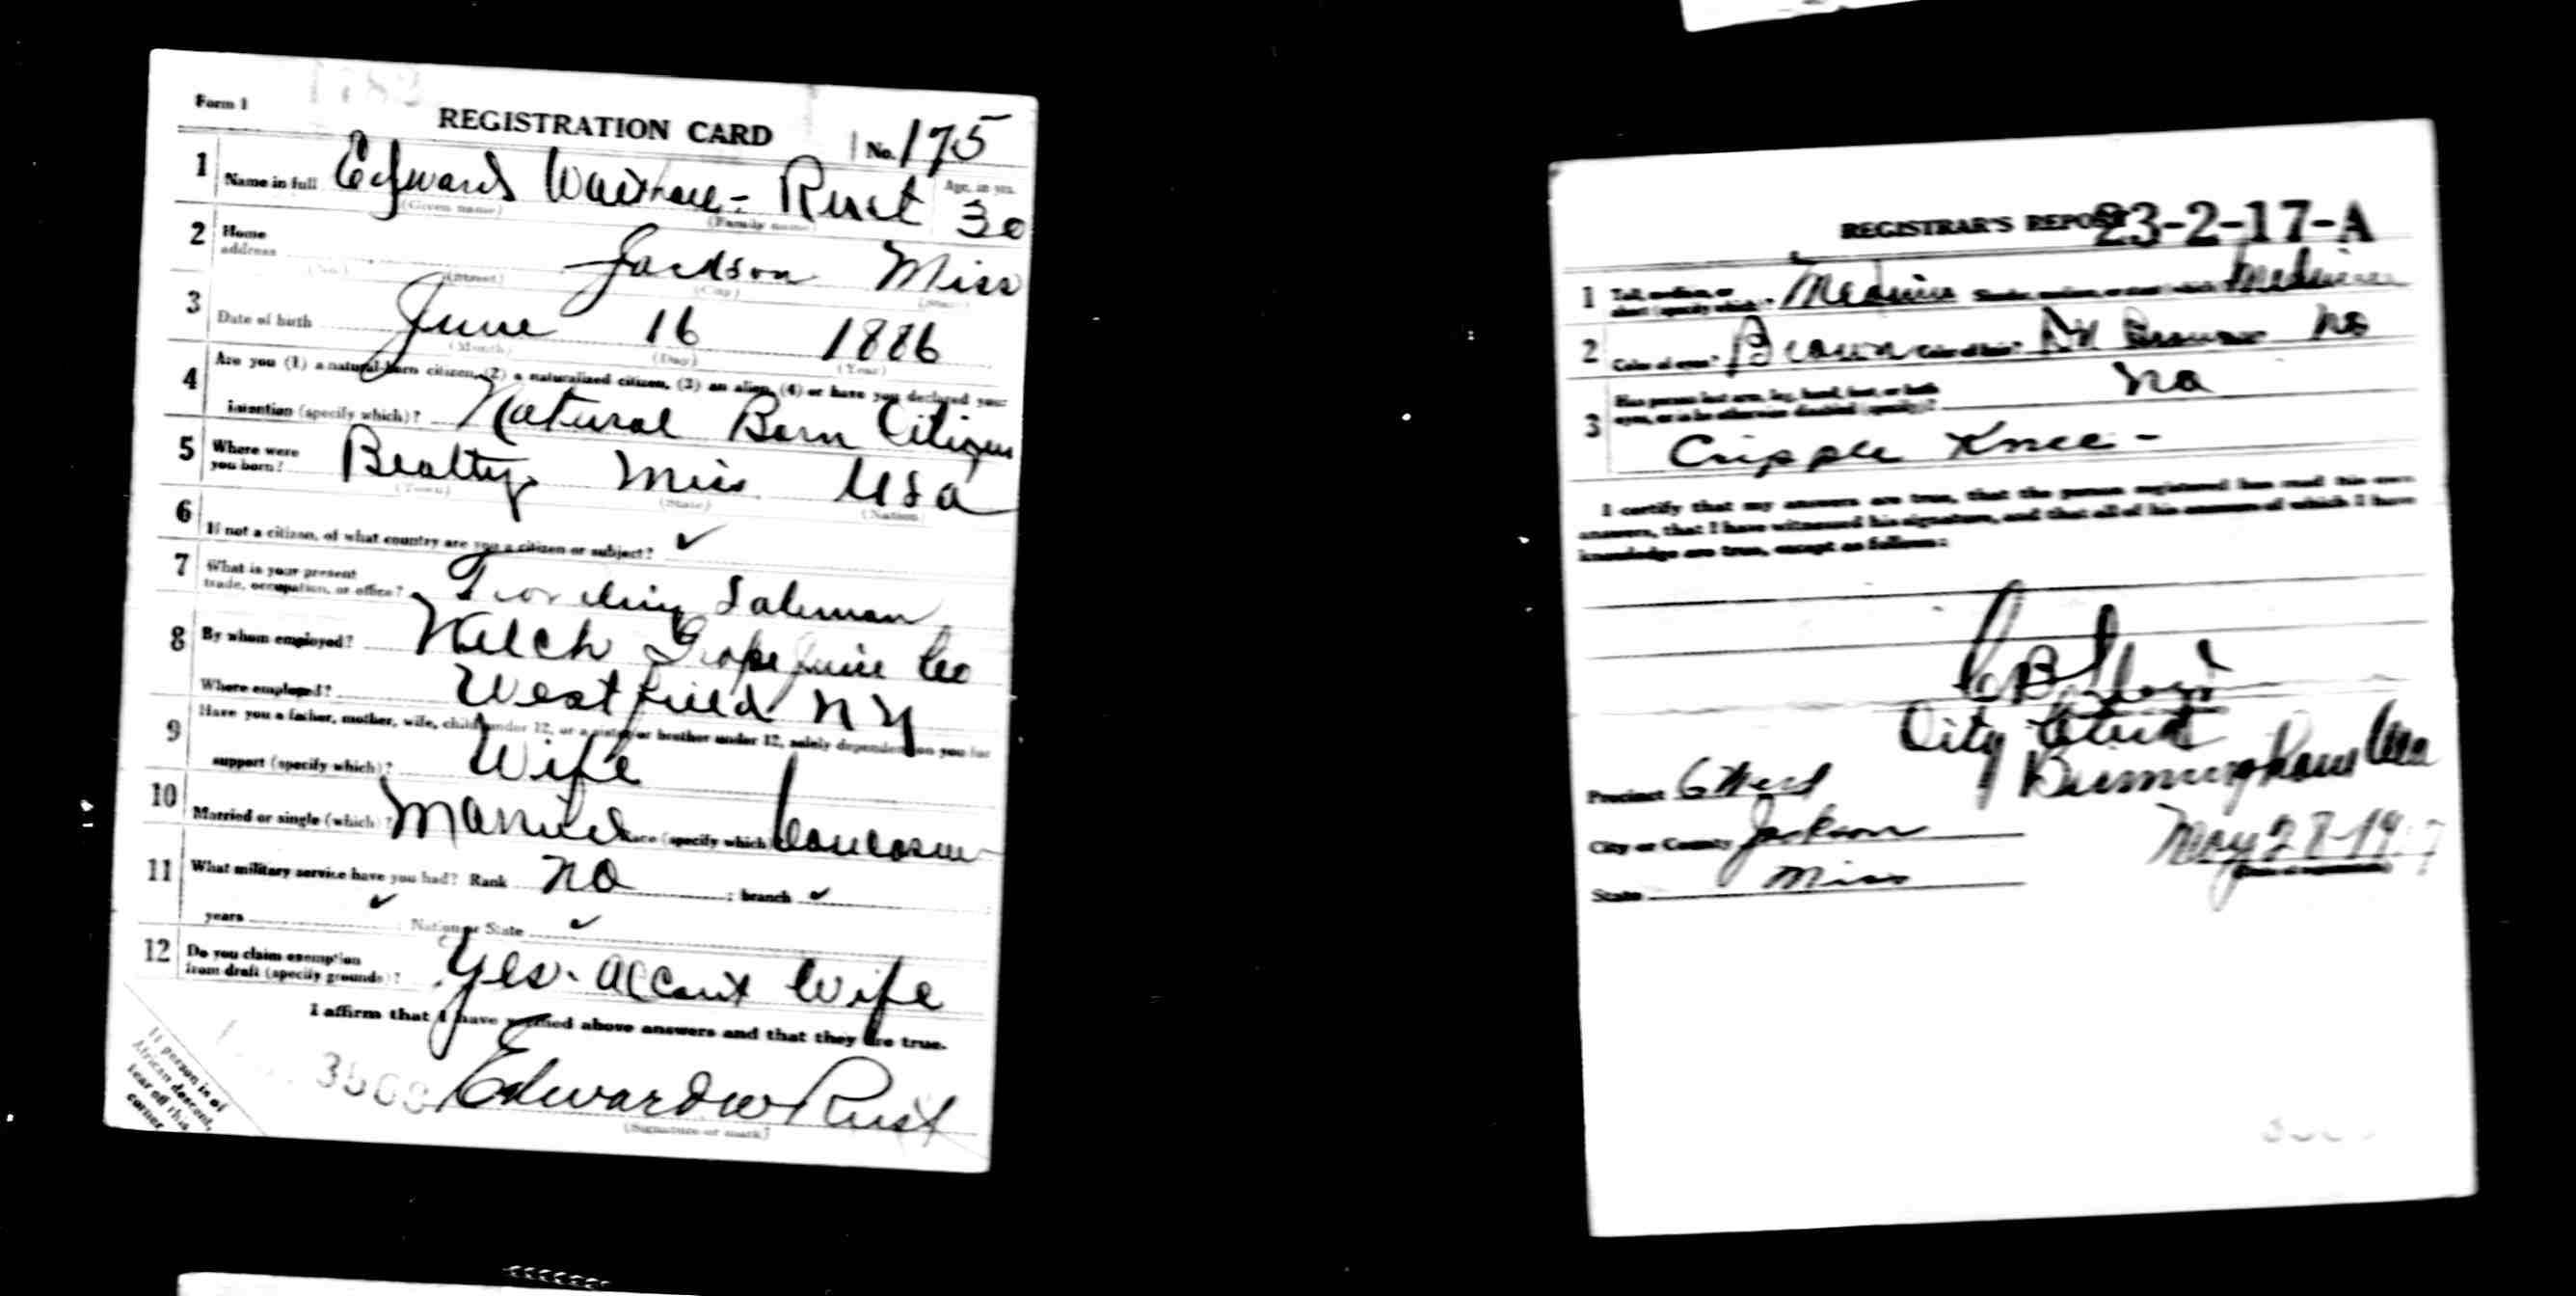 Form 1
REGISTRATION CARD
No. 175
1 Name in full Edward Rust Age, in yrs. 30
(Given name) (Family name)
2 Home address Jackson Miss
(No.) (Street) (City) (State)
3 Date of birth June 16 1886
(Month) (Day) (Year)
4 Are you (1) a natural-born citizen, (2) a naturalized citizen, (3) an alien, (4) or have you declared your
intention (specify which)? Natural Born Citizen
5 Where were you born? Beatty Miss USA
(Town) (State) (Nation)
6 If not a citizen, of what country are you a citizen or subject? ✓
7 What is your present trade, occupation, or office? Traveling Salesman
8 By whom employed? Welch Grape Juice Co
Where employed? Westfield NY
9 Have you a father, mother, wife, child under 12, or a sister or brother under 12, solely dependent on you for
support (specify which)? Wife
10 Married or single (which)? Married Race (specify which)? Caucasian
11 What military service have you had? Rank no ; branch ✓
years ✓ Nation or State ✓
12 Do you claim exemption from draft (specify grounds)? Yes. Account Wife
I affirm that I have verified above answers and that they are true.
Edward W Rust
(Signature or mark)
If person is of
African descent,
tear off this
corner
REGISTRAR'S REPORT 23-2-17-A
1 Tall, medium, or short (specify which)? Medium Slender, medium, or stout (which)? Medium
2 Color of eyes? Brown Color of hair? Dk Brown No
3 Has person lost arm, leg, hand, foot, or both eyes, or is he otherwise disabled (specify)? No
Cripple Knee -
I certify that my answers are true, that the person registered has read his own
answers, that I have witnessed his signature, and that all of his answers of which I have
knowledge are true, except as follows:
City Clerk
Birmingham Ala
Precinct 6 Ward
City or County Jackson
State Miss
May 28-1917
(Date of registration)